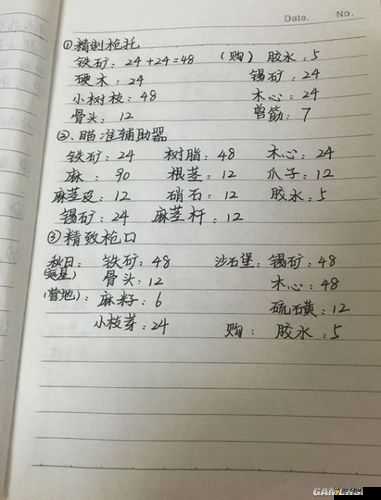 Data. No.
①精制枪托
铁矿：24+24=48 (购) 胶水：5
硬木：24 锡矿：24
小树枝：48 木心：24
骨头：12 兽筋：7
②瞄准辅助器
铁矿：24 树脂：48 木心：24
麻：90 根茎：12 爪子：12
麻茎皮：12 硝石：12 胶水：5
锡矿：24 麻茎杆：12
③精致枪口
秋日：铁矿：48 沙石堡：锡矿：48
骨头：12 木心：48
(营地)：麻籽：6 硫磺：12
小枝芽：24 购：胶水：5